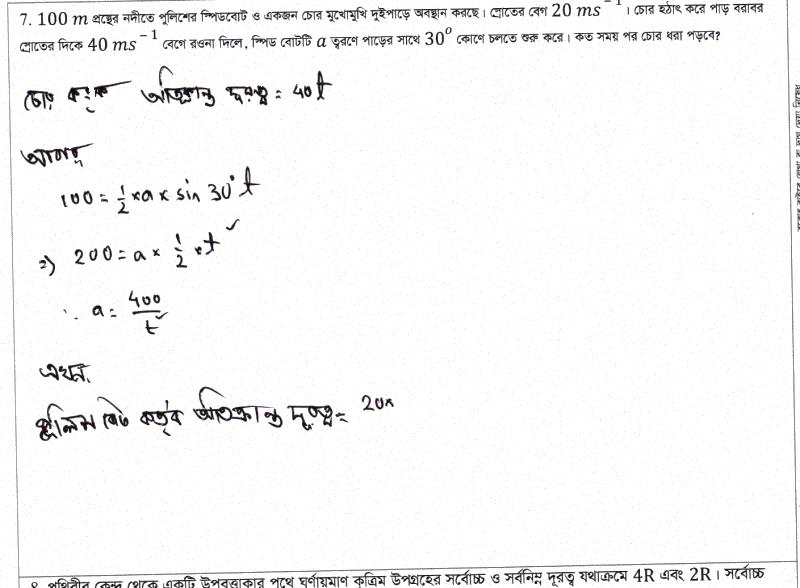 7. 100 m প্রস্থের নদীতে পুলিশের স্পিডবোট ও একজন চোর মুখোমুখি দুইপাড়ে অবস্থান করছে। স্রোতের বেগ 20 ms⁻¹ । চোর হঠাৎ করে পাড় বরাবর
স্রোতের দিকে 40 ms⁻¹ বেগে রওনা দিলে, স্পিড বোটটি a ত্বরণে পাড়ের সাথে 30° কোণে চলতে শুরু করে। কত সময় পর চোর ধরা পড়বে?
চোর কর্তৃক অতিক্রান্ত দূরত্ব = 40t
আবার
100 = ½ × a × sin 30° t
⇒ 200 = a × ½ × t²
∴ a = 400/t²
এখন,
পুলিশ বোট কর্তৃক অতিক্রান্ত দূরত্ব = 20×
৪. পৃথিবীর কেন্দ্র থেকে একটি উপবৃত্তাকার পথে ঘূর্ণায়মাণ কৃত্রিম উপগ্রহের সর্বোচ্চ ও সর্বনিম্ন দূরত্ব যথাক্রমে 4R এবং 2R। সর্বোচ্চ